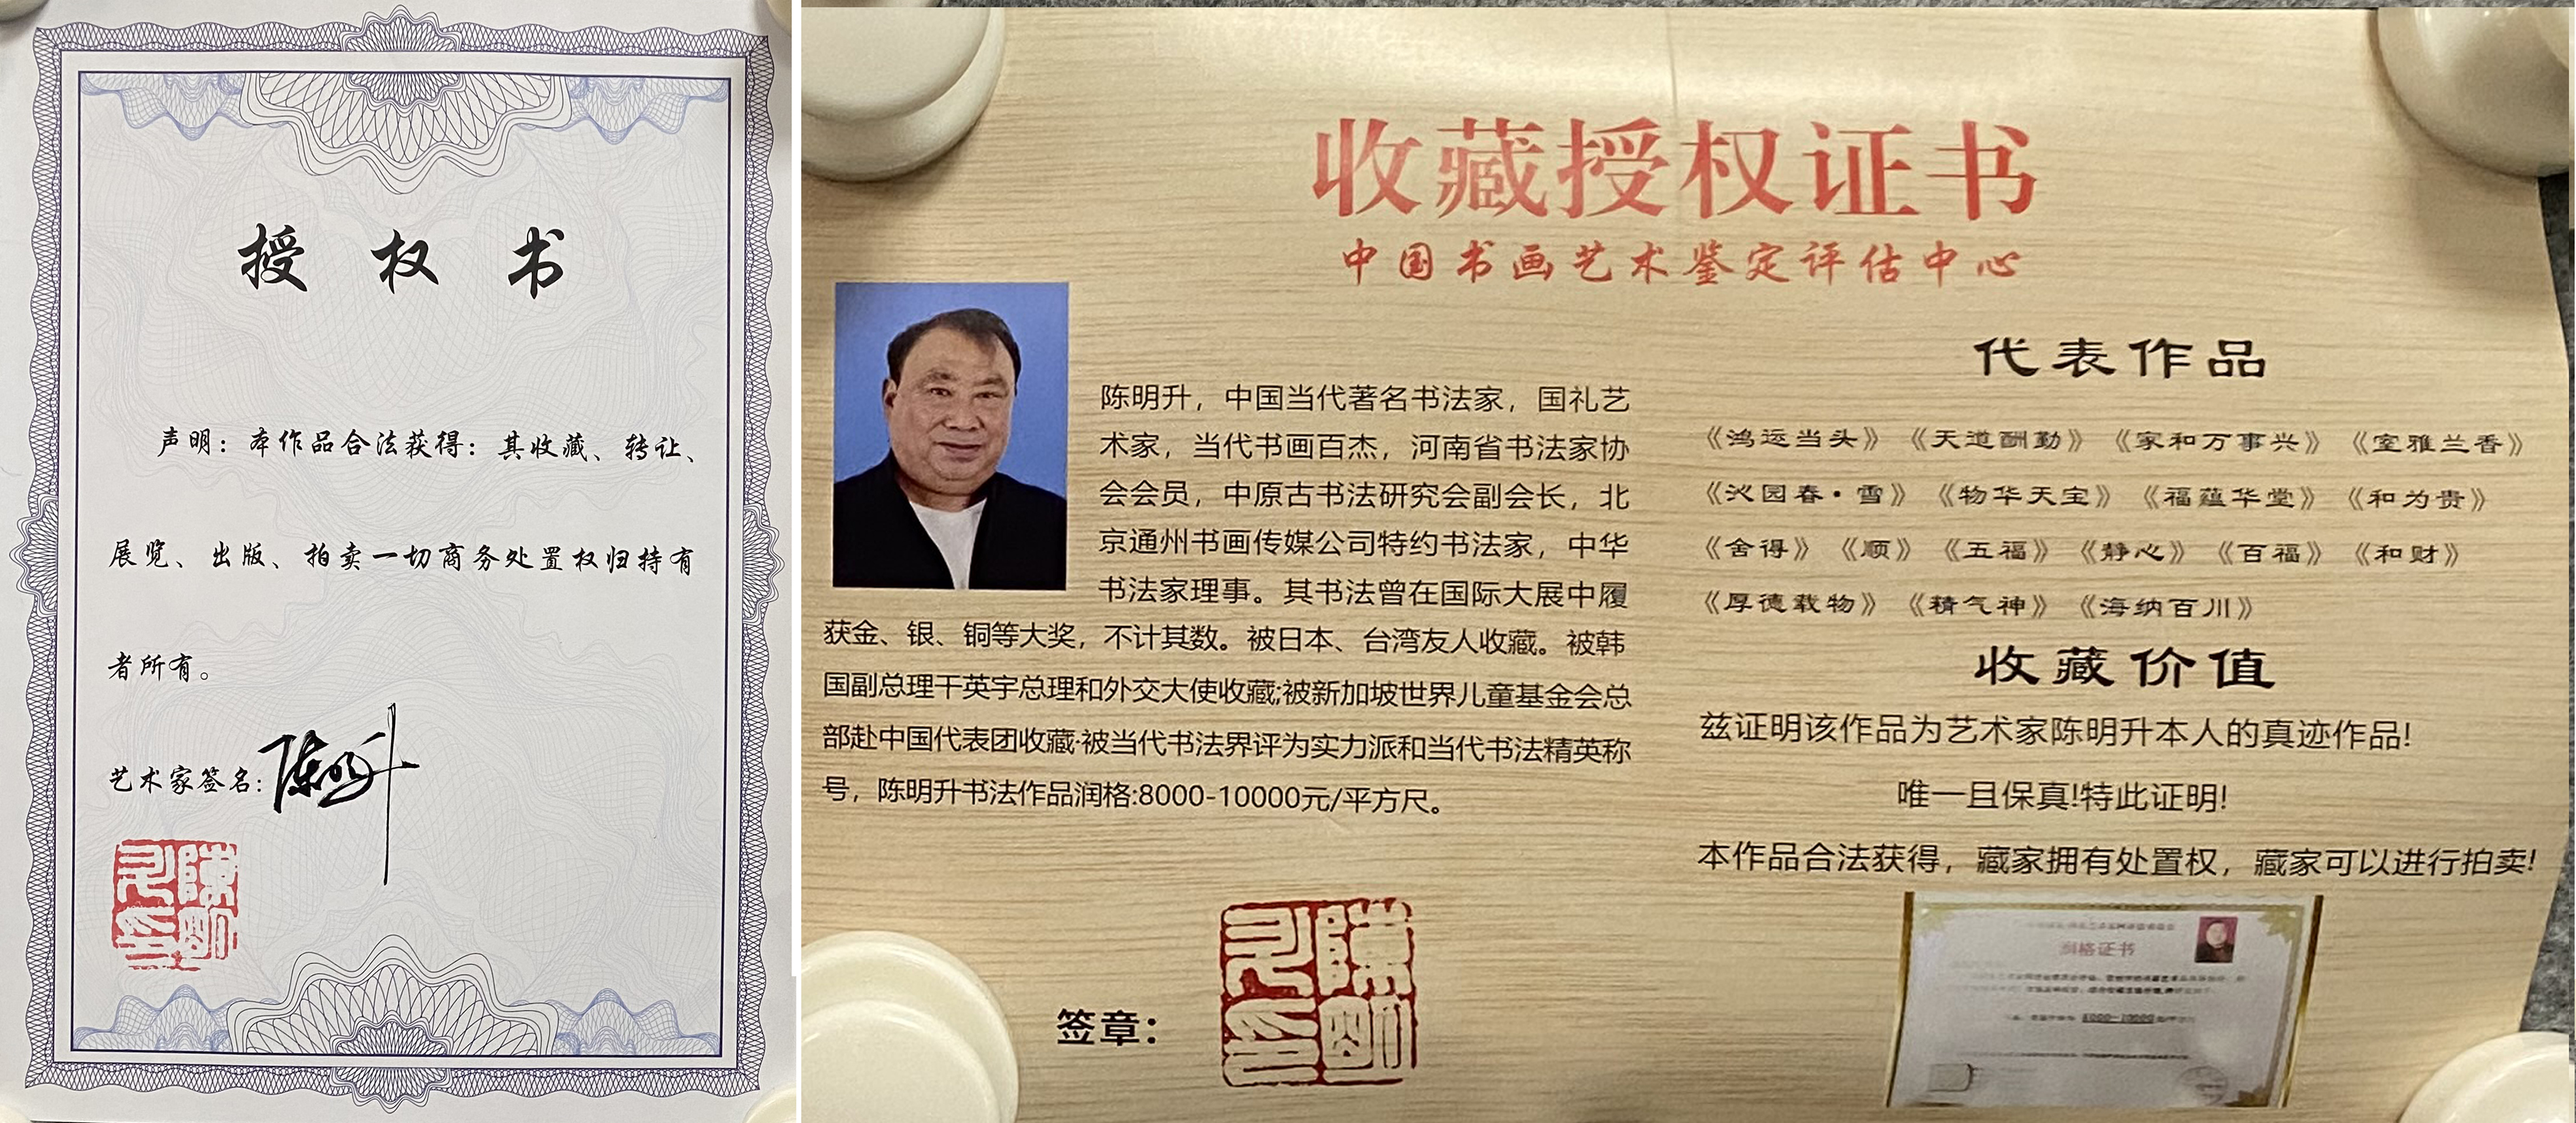 授权书
声明：本作品合法获得：其收藏、转让、
展览、出版、拍卖一切商务处置权归持有
者所有。
艺术家签名：陈明升
收藏授权证书
中国书画艺术鉴定评估中心
陈明升，中国当代著名书法家，国礼艺
术家，当代书画百杰，河南省书法家协
会会员，中原古书法研究会副会长，北
京通州书画传媒公司特约书法家，中华
书法家理事。其书法曾在国际大展中履
获金、银、铜等大奖，不计其数。被日本、台湾友人收藏。被韩
国副总理干英宇总理和外交大使收藏;被新加坡世界儿童基金会总
部赴中国代表团收藏·被当代书法界评为实力派和当代书法精英称
号，陈明升书法作品润格:8000-10000元/平方尺。
签章：
代表作品
《鸿运当头》《天道酬勤》《家和万事兴》《室雅兰香》
《沁园春·雪》《物华天宝》《福蕴华堂》《和为贵》
《舍得》《顺》《五福》《静心》《百福》《和财》
《厚德载物》《精气神》《海纳百川》
收藏价值
兹证明该作品为艺术家陈明升本人的真迹作品!
唯一且保真!特此证明!
本作品合法获得，藏家拥有处置权，藏家可以进行拍卖!
润格证书
8000-10000